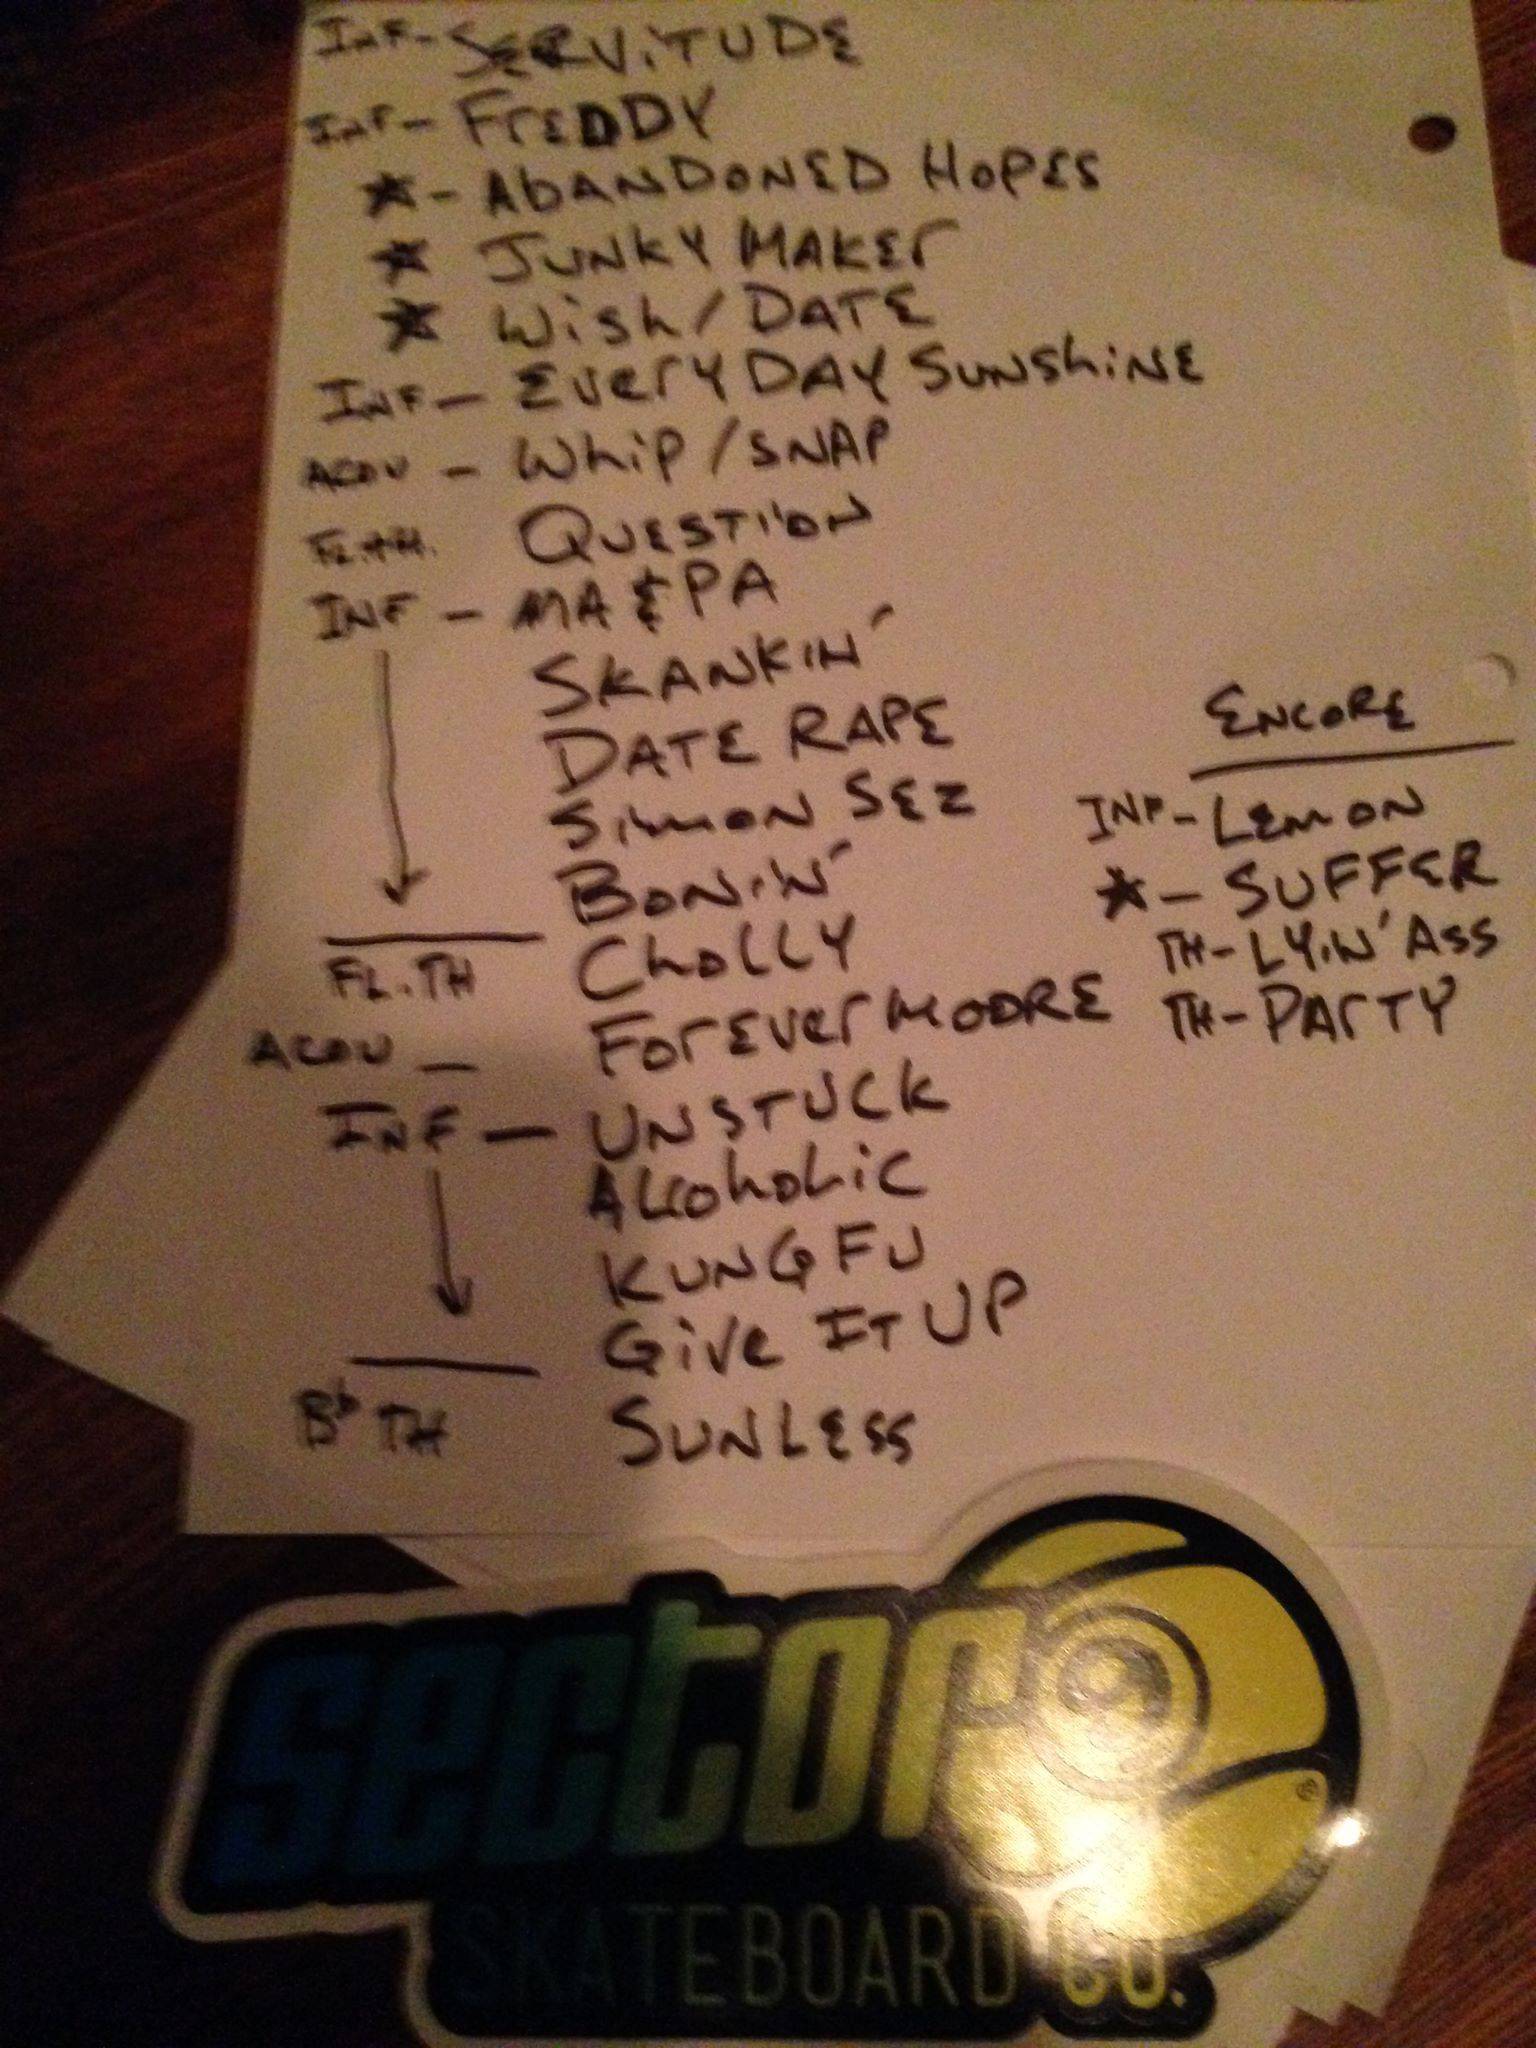 INF- SERVITUDE
INF- FREDDY
★- ABANDONED HOPES
★ JUNKY MAKER
★ WISH/DATE
INF- EVERYDAY SUNSHINE
ACOU - WHIP/SNAP
FL.TH. QUESTION
INF - MA & PA
SKANKIN'
DATE RAPE
SIMON SEZ
BONIN'
FL.TH CHOLLY
ACOU - FOREVERMOORE
INF - UNSTUCK
ALCOHOLIC
KUNG FU
GIVE IT UP
B♭ TH SUNLESS
ENCORE
INF- LEMON
★- SUFFER
TH- LYIN' ASS
TH- PARTY
sector 9
®
SKATEBOARD CO.